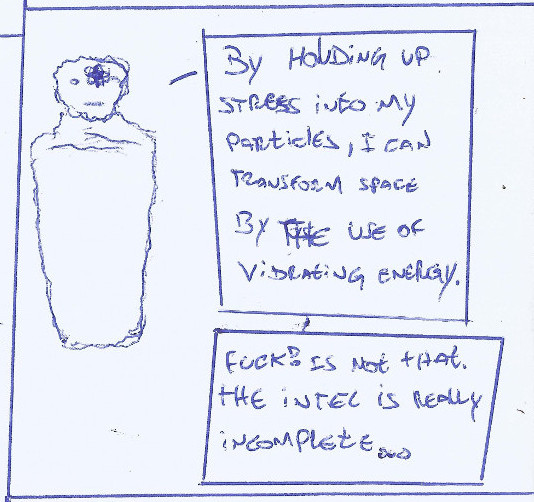 By HOLDING UP
STRESS iNTO MY
PARTiCLES, I CAN
TRANSFORM SPACE
By THE USE OF
ViBRATiNG ENERGY.
FUCK? IS NOt tHAt.
tHE iNTEL iS REALLY
iNCOMPLETE...